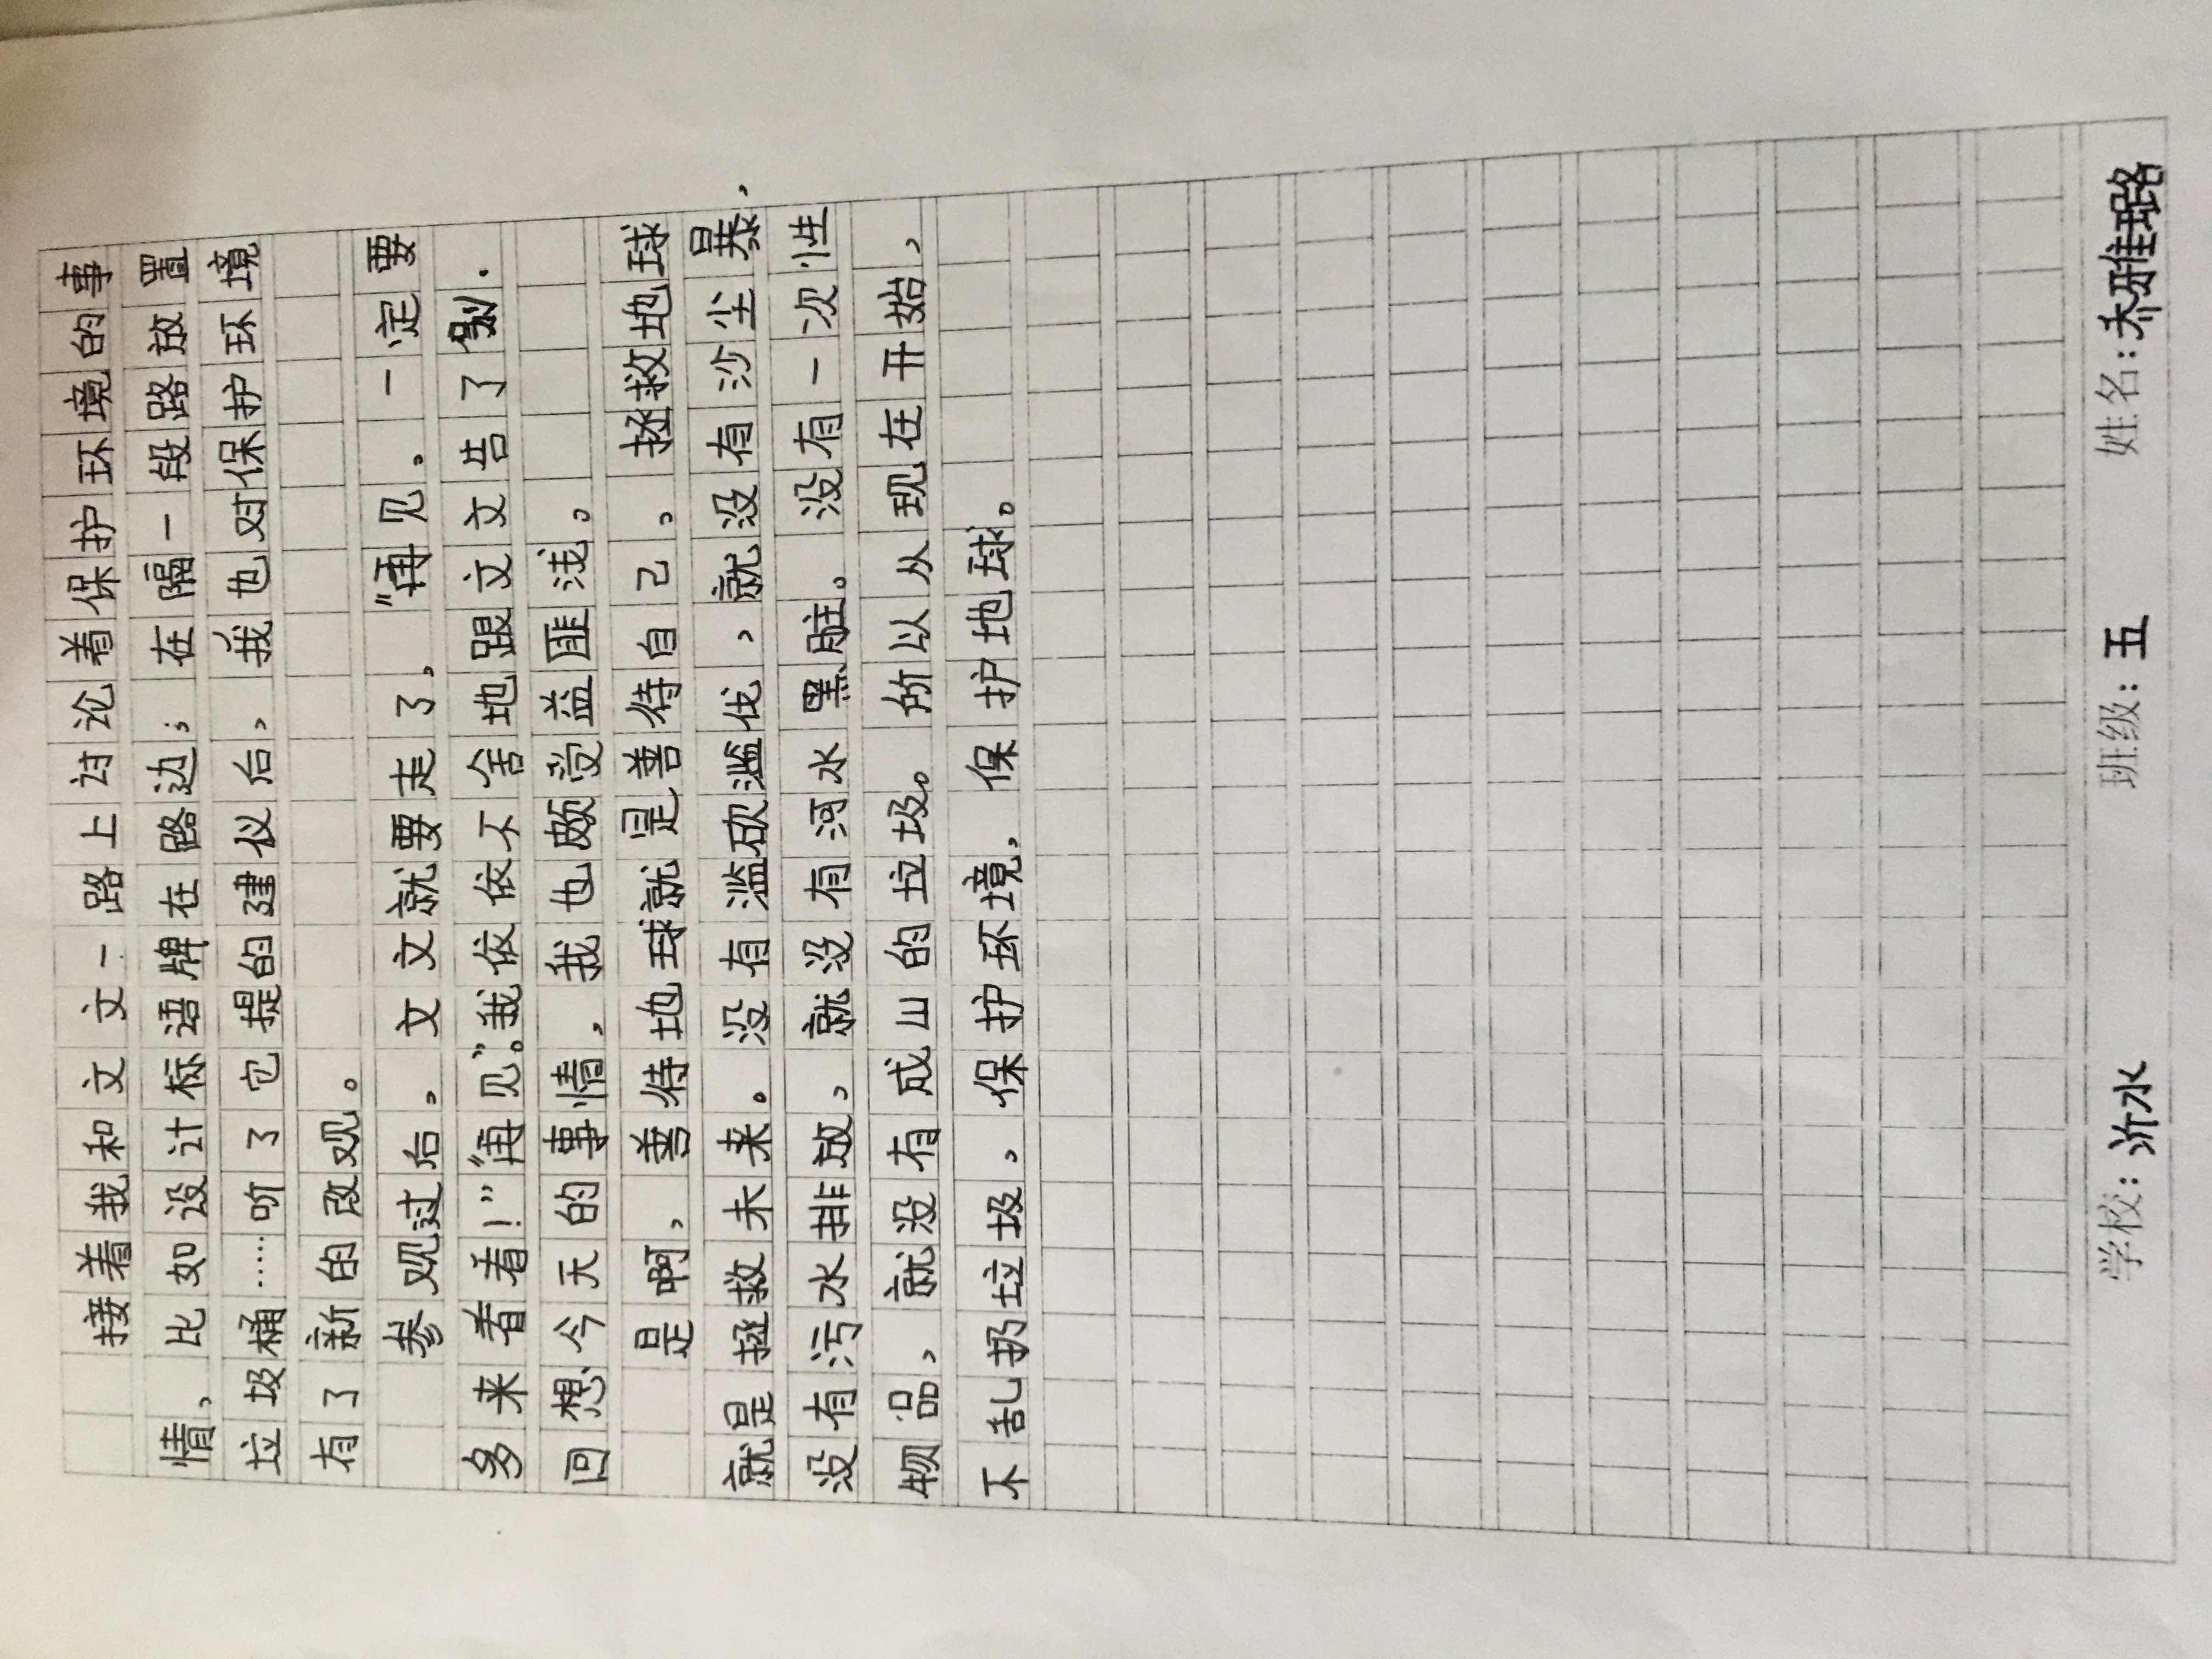 接着我和文文一路上讨论着保护环境的事
情，比如设计标语牌在路边；在隔一段路放置
垃圾桶……听了它提的建议后，我也对保护环境
有了新的改观。
参观过后。文文就要走了，“再见。一定要
多来看看！”“再见”。我依依不舍地跟文文告了别．
回想今天的事情，我也颇受益匪浅。
是啊，善待地球就是善待自己，拯救地球
就是拯救未来。没有滥砍滥伐，就没有沙尘暴，
没有污水排放，就没有河水黑脏。没有一次性
物品，就没有成山的垃圾。所以从现在开始，
不乱扔垃圾，保护环境，保护地球。
学校：沂水 班级：五 姓名：乔雅璐